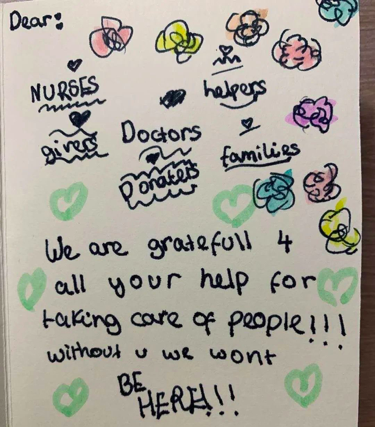 Dear:
NURSES
helpers
givers
Doctors
families
Donaters
We are gratefull 4
all your help for
taking care of people!!!
without u we wont
BE
HERE!!!